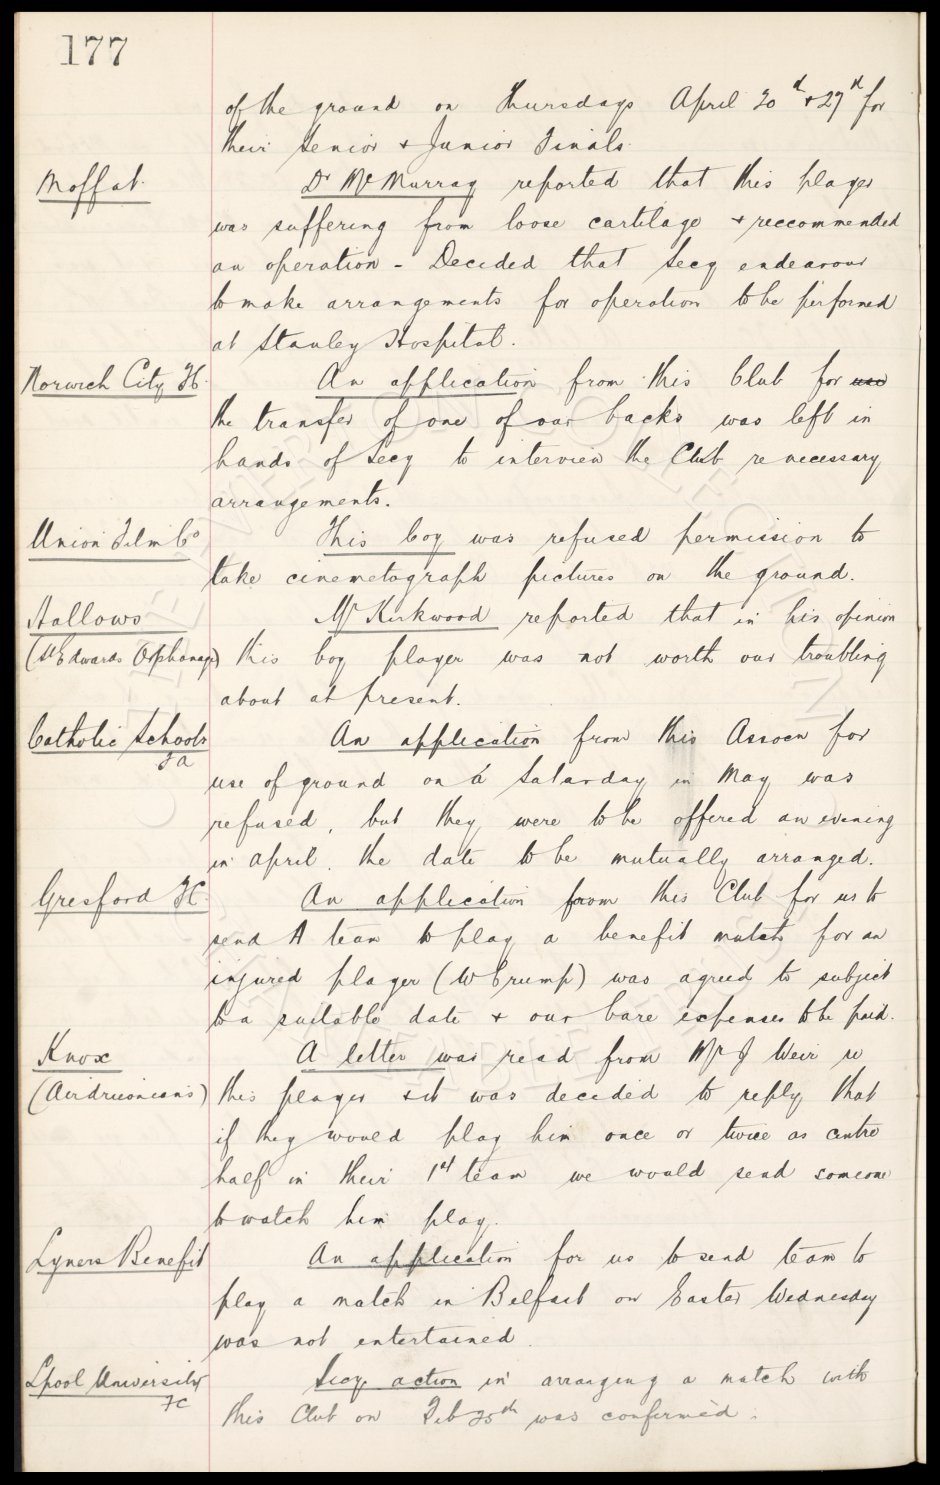 177
of the ground on Thursdays April 20th & 27th for
their Senior & Junior Finals.
Moffat.
Dr McMurray reported that this player
was suffering from loose cartilage & reccommended
an operation - Decided that Secy endeavour
to make arrangements for operation to be performed
at Stanley Hospital.
Norwich City FC.
An application from this Club for use
the transfer of one of our backs was left in
hands of Secy to interview the Club re necessary
arrangements.
Union Film Co
This boy was refused permission to
take cinemetograph pictures on the ground.
Hallows
Mr Kirkwood reported that in his opinion
(St Edwards Orphanage) this boy player was not worth our troubling
about at present.
Catholic Schools
FA
An application from this Assocn for
use of ground on a Saturday in May was
refused, but they were to be offered an evening
in April. the date to be mutually arranged.
Gresford FC.
An application from this Club for us to
send A team to play a benefit match for an
injured player (W Crump) was agreed to subject
to a suitable date & our bare expenses to be paid.
Knox
A letter was read from Mr J Weir re
(Airdrieonians) this player & it was decided to reply that
if they would play him once or twice as centre
half in their 1st team we would send someone
to watch him play.
Lyners Benefit
An application for us to send team to
play a match in Belfast on Easter Wednesday
was not entertained.
Lpool University
FC
Secys action in arranging a match with
this Club on Feb 25th was confirmed.